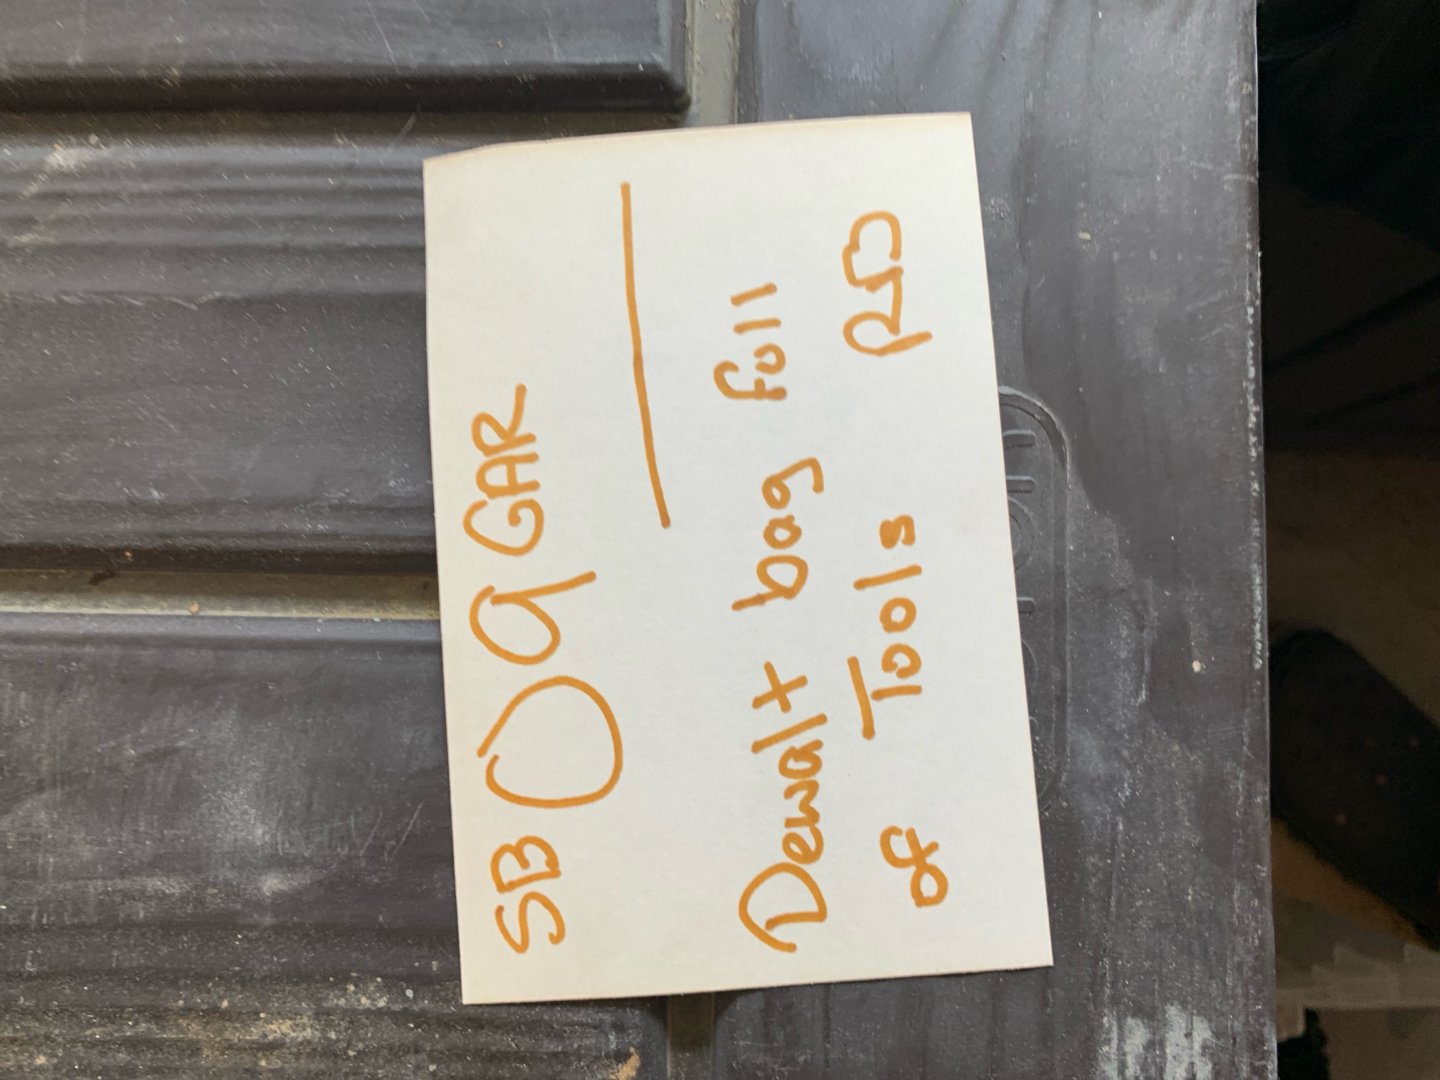 SB 09 GAR
Dewalt bag full
of Tools RD